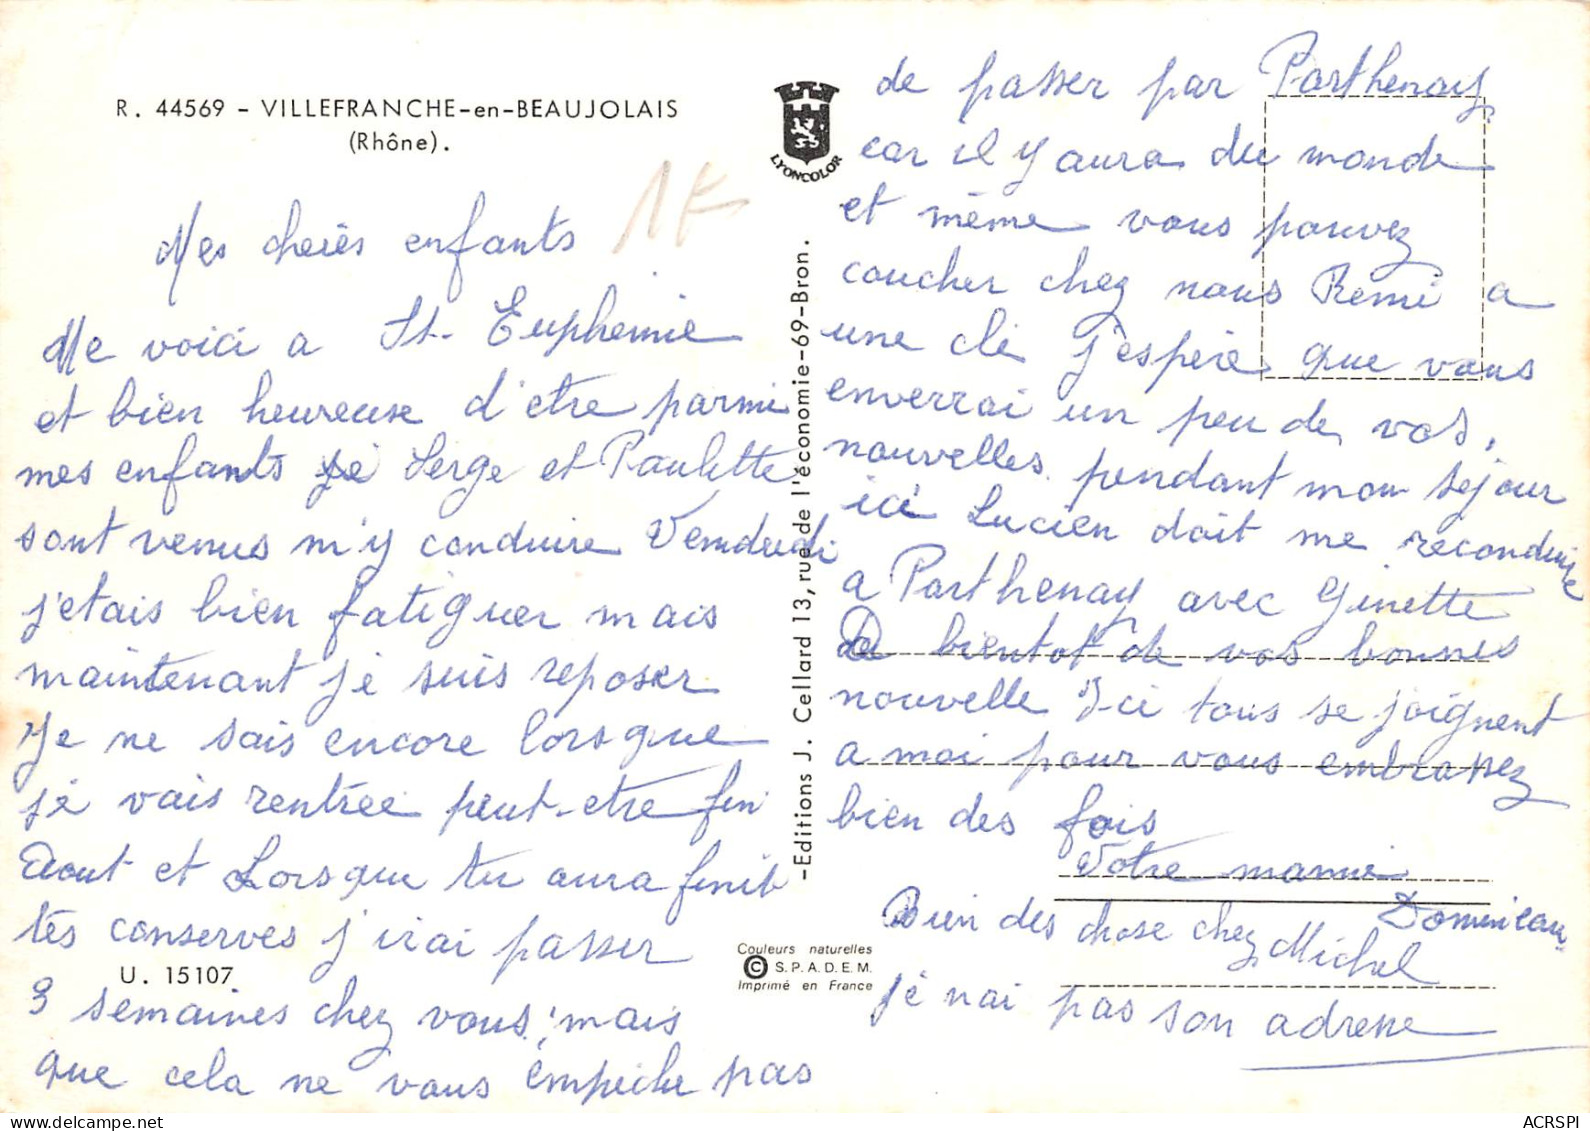 R. 44569 - VILLEFRANCHE-en-BEAUJOLAIS
(Rhône).
1F
Mes cheiès enfants
Me voici a St. Euphemie
et bien heureuse d'etre parmi
mes enfants Serge et Paulette
sont venus m'y conduire Vendredi
j'etais bien fatiguer mais
maintenant je suis reposer
Je ne sais encore lorsque
je vais rentrée peut-etre fin
Aout et Lorsque tu aura finit
tes conserves j'irai passer
U. 15107
3 semaines chez vous, mais
que cela ne vous empèche pas
LYONCOLOR
-Editions J. Cellard 13, rue de l'économie-69-Bron.
Couleurs naturelles
© S.P.A.D.E.M.
Imprimé en France
de passer par Parthenay
car il y aura du monde
et même vous pouvez
coucher chez nous Remi a
une clé J'espère que vous
enverrai un peu de vos
nouvelles pendant mon séjour
ici Lucien doit me reconduire
a Parthenay avec Ginette
A bientot de vos bonnes
nouvelle Ici tous se joignent
a moi pour vous embrassez
bien des fois
Votre mamie
Domineau
Bien des chose chez Michel
je nai pas son adresse
ACRSPI